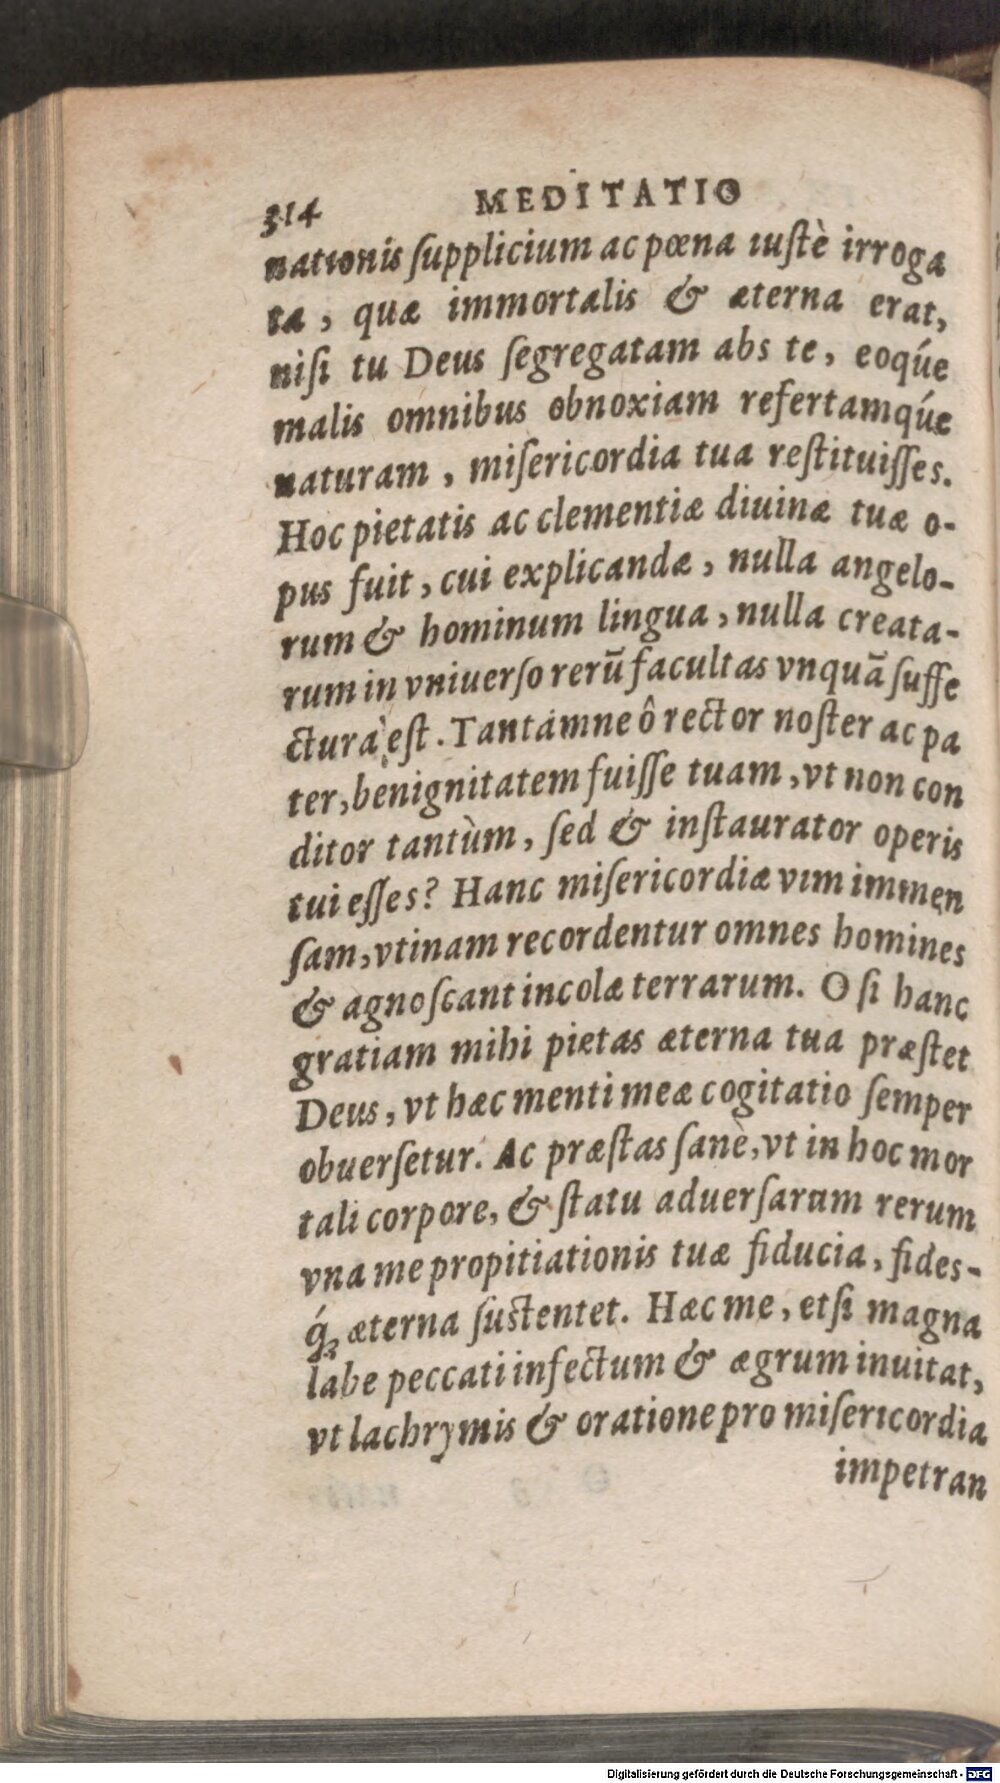 314 MEDITATIO
nationis ſupplicium ac pœna iuſtè irroga
ta, quæ immortalis & æterna erat,
niſi tu Deus ſegregatam abs te, eoq́ue
malis omnibus obnoxiam refertamq́ue
naturam, miſericordia tua reſtituiſſes.
Hoc pietatis ac clementiæ diuinæ tuæ o-
pus fuit, cui explicandæ, nulla angelo-
rum & hominum lingua, nulla creata-
rum in vniuerſo rerū facultas vnquā ſuffe
ctura eſt. Tantámne ô rector noſter ac pa
ter, benignitatem fuiſſe tuam, vt non con
ditor tantùm, ſed & inſtaurator operis
tui eſſes? Hanc miſericordiæ vim immen
ſam, vtinam recordentur omnes homines
& agnoſcant incolæ terrarum. O ſi hanc
gratiam mihi pietas æterna tua præſtet
Deus, vt hæc menti meæ cogitatio ſemper
obuerſetur. Ac præſtas ſanè, vt in hoc mor
tali corpore, & ſtatu aduerſarum rerum
vna me propitiationis tuæ fiducia, fides-
q́; æterna ſuſtentet. Hæc me, etſi magna
labe peccati infectum & ægrum inuitat,
vt lachrymis & oratione pro miſericordia
impetran
Digitalisierung gefördert durch die Deutsche Forschungsgemeinschaft - DFG